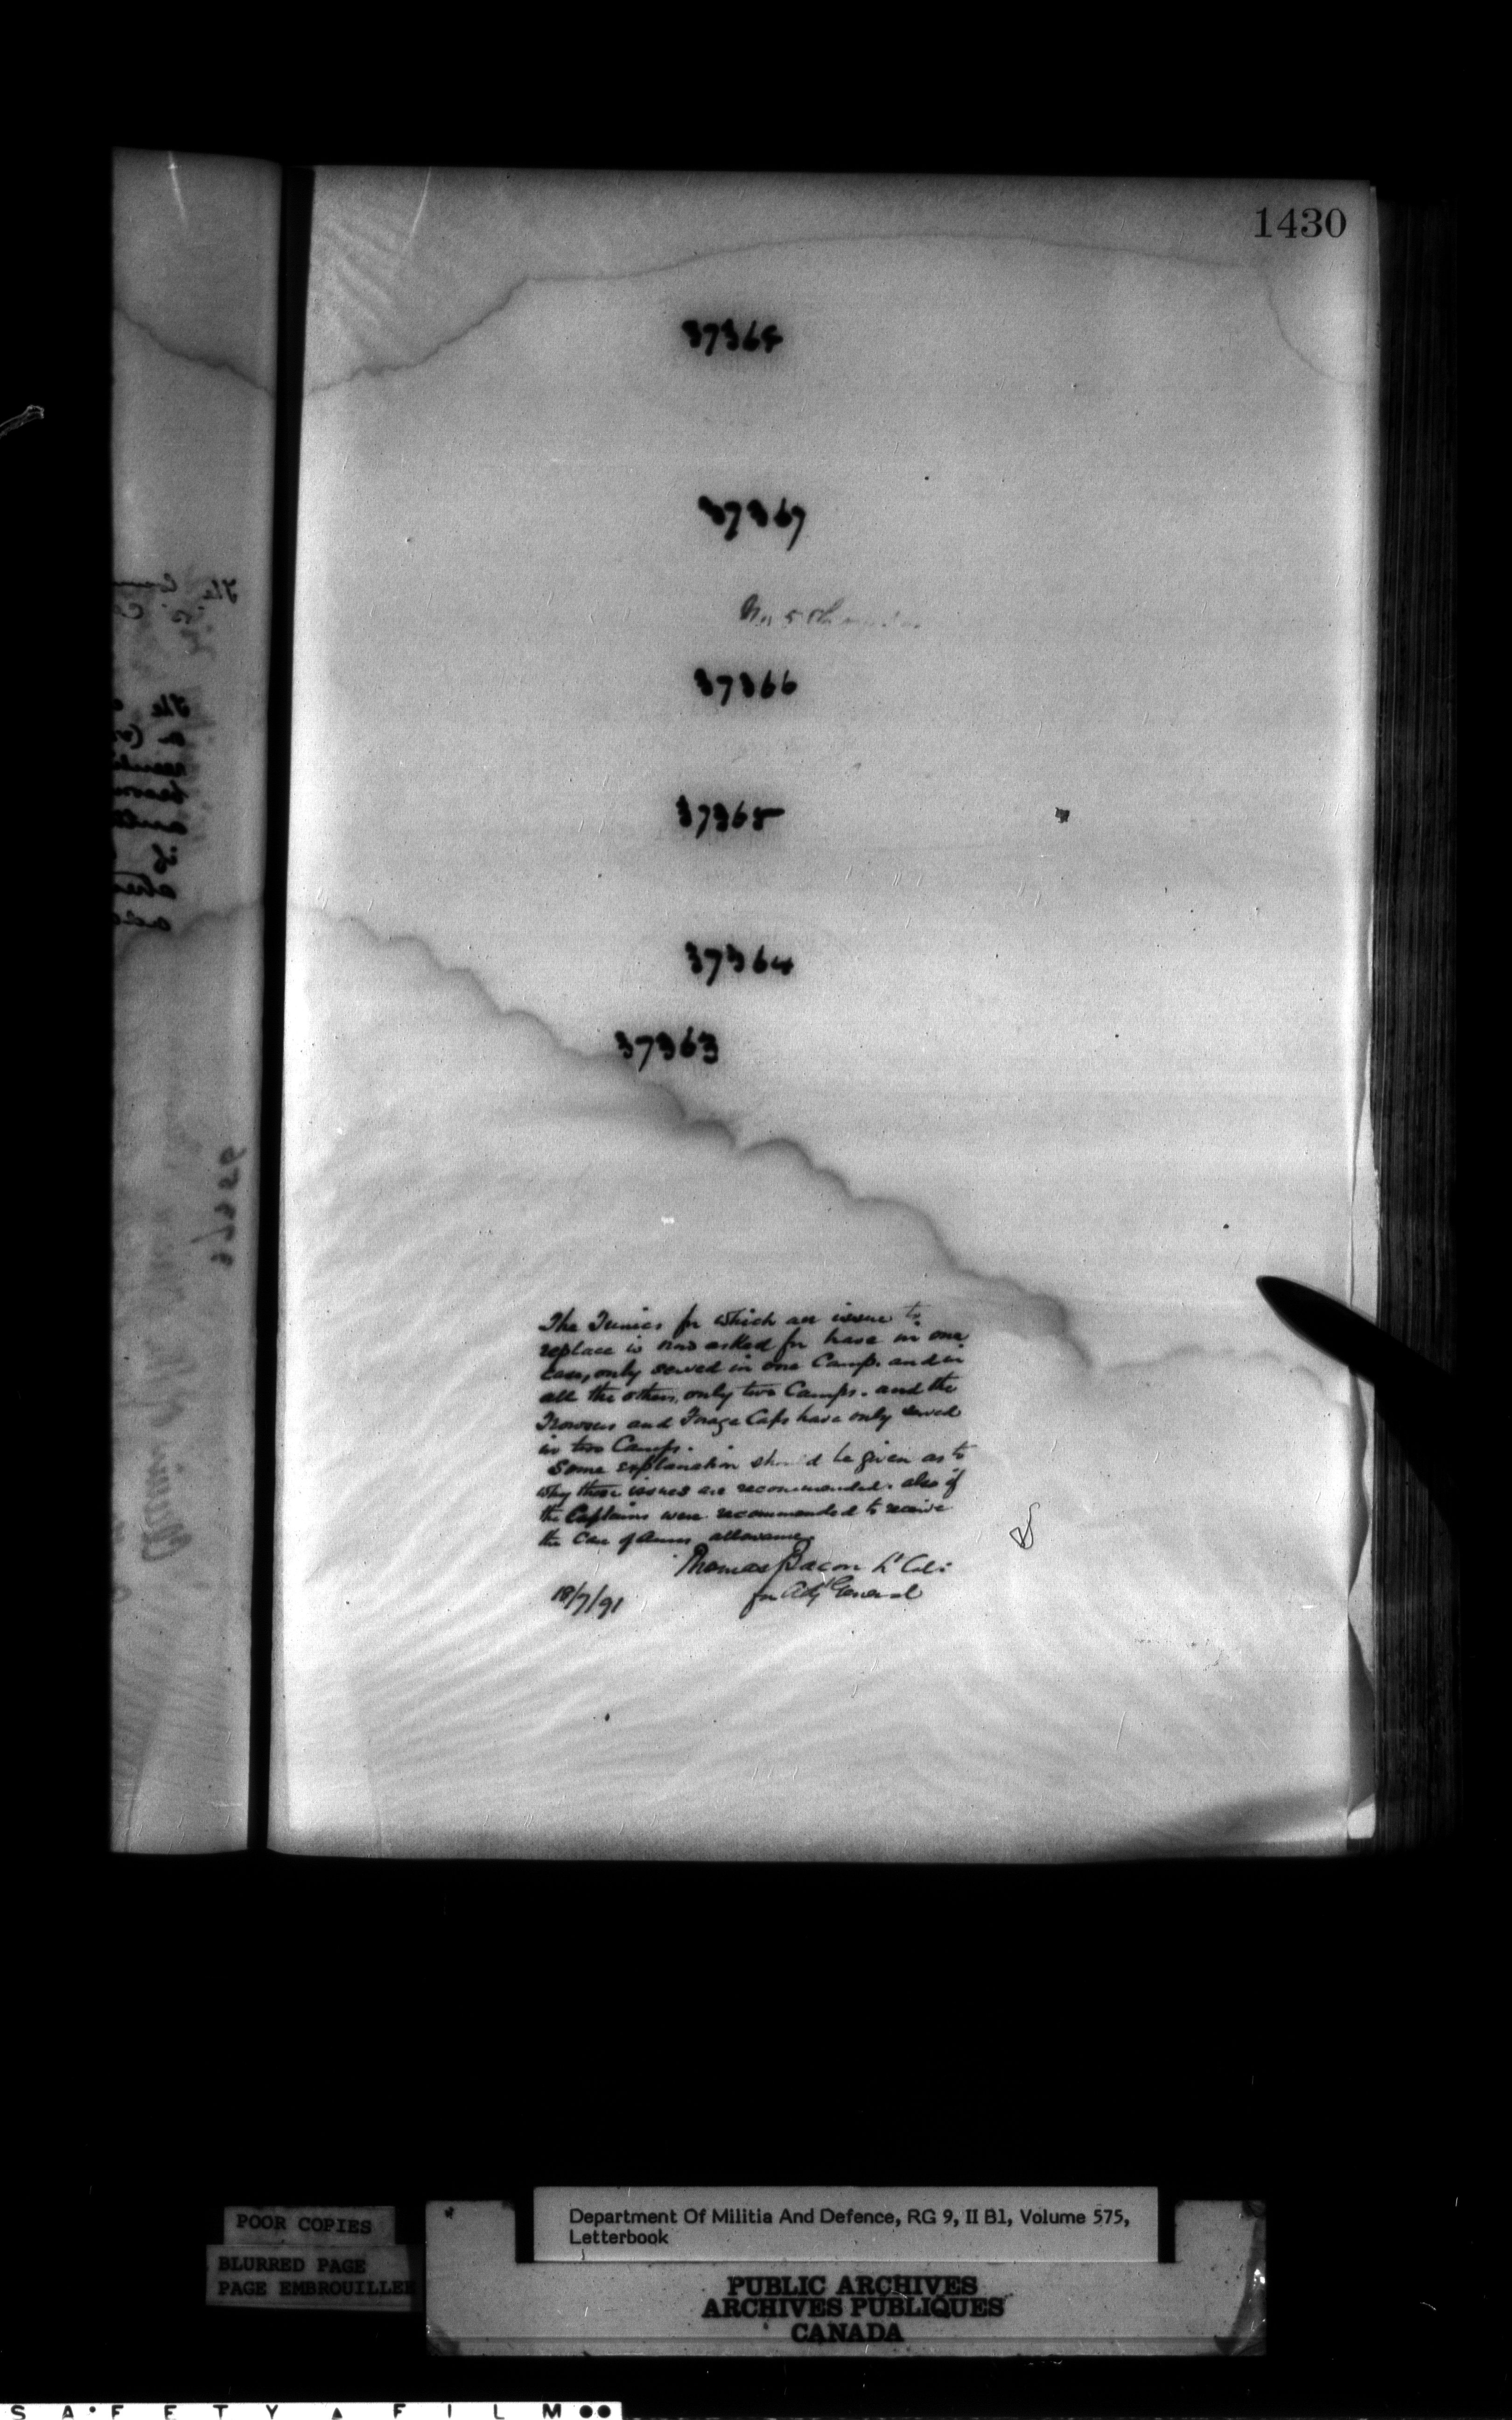 1430
37368
37367
No 5
37366
37365
37364
37363
The Tunics for which an issue to
replace is now asked for have in one
case, only served in one Camp. and in
all the others, only two Camps. and the
Trowsers and Forage Caps have only served
in two Camps.
Some explanation should be given as to
why these issues are recommended. also if
the Captains were recommended to receive
the Care of Arms allowance.
Thomas Bacon Lt Col:
for Adjt General
18/7/91
POOR COPIES
BLURRED PAGE
PAGE EMBROUILLEE
Department Of Militia And Defence, RG 9, II B1, Volume 575,
Letterbook
PUBLIC ARCHIVES
ARCHIVES PUBLIQUES
CANADA
SAFETY FILM